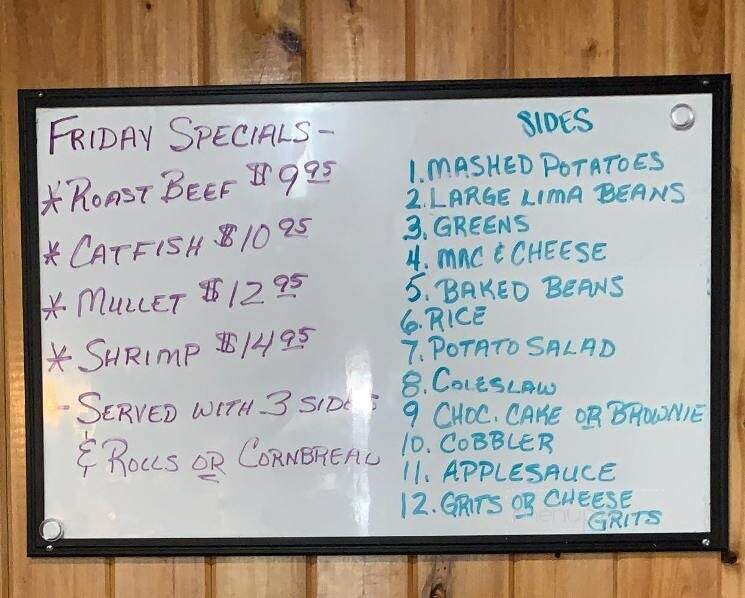 FRIDAY SPECIALS-
* ROAST BEEF $9.95
* CATFISH $10.95
* MULLET $12.95
* SHRIMP $14.95
- SERVED WITH 3 SIDES
& ROLLS OR CORNBREAD
SIDES
1. MASHED POTATOES
2. LARGE LIMA BEANS
3. GREENS
4. MAC & CHEESE
5. BAKED BEANS
6. RICE
7. POTATO SALAD
8. COLESLAW
9 CHOC. CAKE OR BROWNIE
10. COBBLER
11. APPLESAUCE
12. GRITS OR CHEESE
GRITS